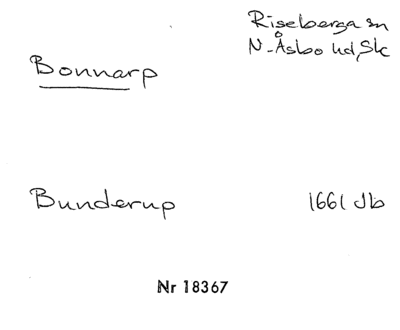 Riseberga sn
N-Åsbo hd, Sk
Bonnarp
Bunderup 1661 Jb
Nr 18367